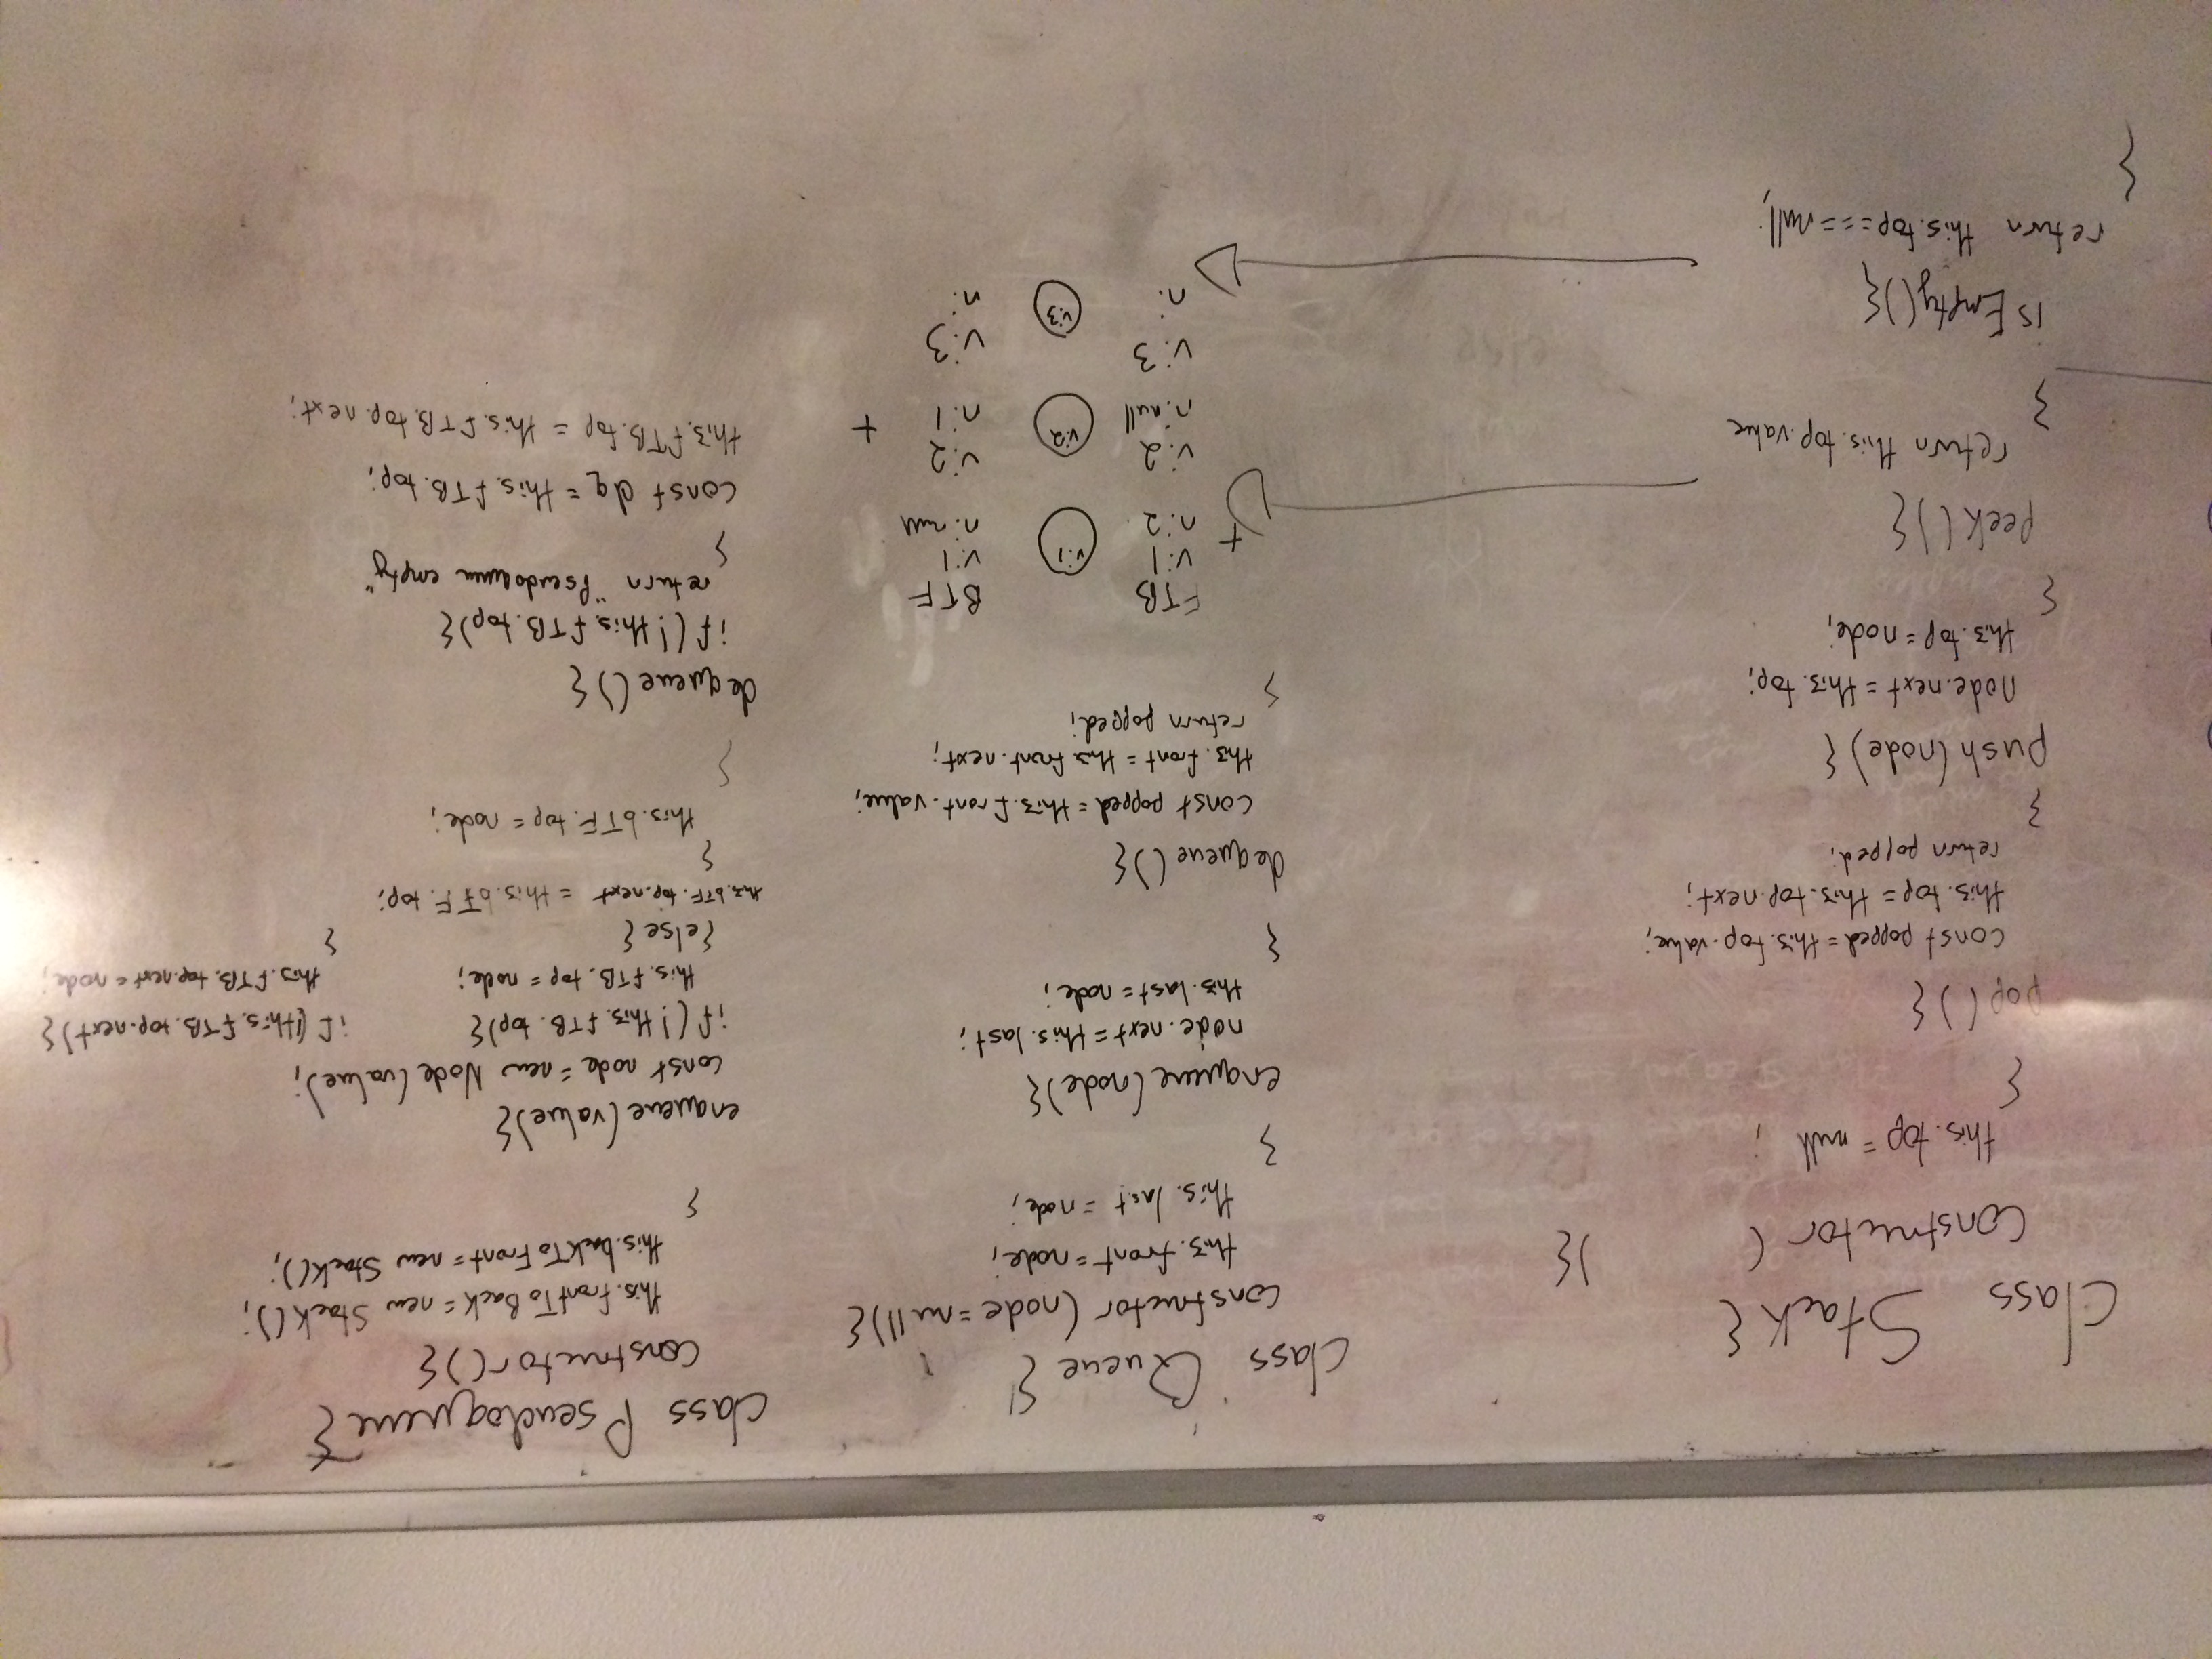 class Stack {
constructor ( ){
this.top = null ;
}
pop(){
const popped = this.top.value;
this.top = this.top.next;
return popped;
}
push(node) {
node.next = this.top;
this.top = node;
}
peek(){
return this.top.value
}
isEmpty(){
return this.top === null;
}
class Queue {
constructor (node = null){
this.front = node;
this.last = node;
}
enqueue (node){
node.next = this.last;
this.last = node;
}
dequeue (){
const popped = this.front.value;
this.front = this.front.next;
return popped;
}
FTB BTF
v:1 v:1 v:1
+ n:2 n:null
v:2 v:2 v:2
n:null n:1 +
v:3 v:3 v:3
n: n:
class Pseudoqueue {
constructor(){
this.frontToBack = new Stack();
this.backToFront = new Stack();
}
enqueue (value){
const node = new Node (value);
if (! this.fTB.top){ if (!this.fTB.top.next){
this.fTB.top = node; this.fTB.top.next = node;
}else { }
this.bTF.top.next = this.bTF.top;
}
this.bTF.top = node;
}
dequeue (){
if (! this.fTB.top){
return "Pseudoqueue empty"
}
const dq = this.fTB.top;
this.fTB.top = this.fTB.top.next;